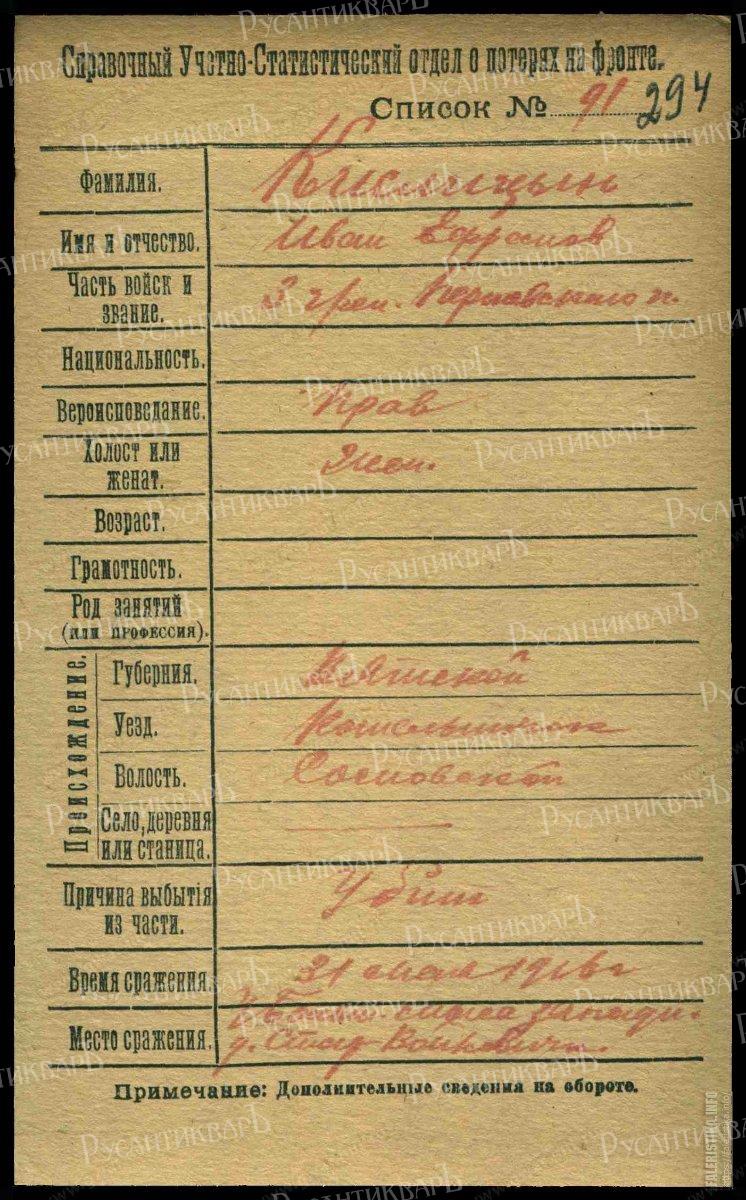 Справочный Учетно-Статистический отдел о потерях на фронте.
Список № 91 294
Фамилия. Кисилицын
Имя и отчество. Иван Ефремов
Часть войск и звание. 3 грен. Перновского п.
Национальность.
Вероисповедание. Прав
Холост или женат. Жен.
Возраст.
Грамотность.
Род занятий (или профессия).
Происхождение.
Губерния. Вятской
Уезд. Котельнич
Волость. Сосновской
Село, деревня или станица.
Причина выбытія из части. Убит
Время сражения. 21 1916 г
Место сражения.
д.
Примечание: Дополнительные сведения на обороте.
РусАнтикваръ
FALERISTIKA.INFO